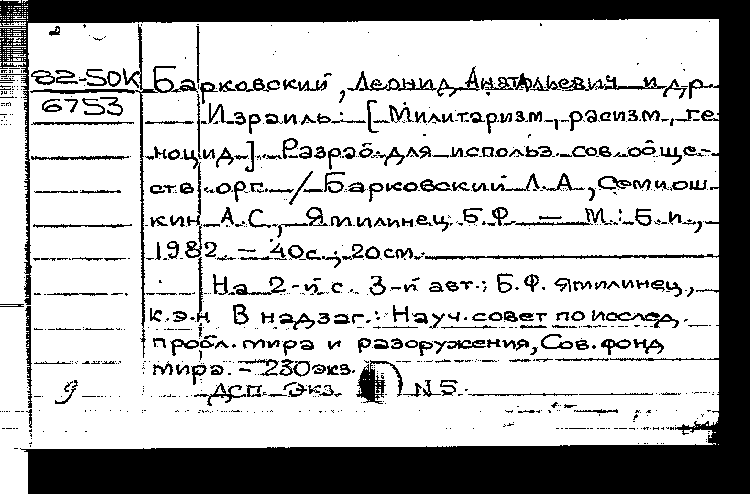 82-50К Барковский, Леонид Анатольевич и др.
6753 Израиль: [Милитаризм, расизм, ге-
ноцид]. Разраб. для использ. сов. обще-
ств. орг. / Барковский Л.А., Семиош-
кин А.С., Ямилинец Б.Ф. — М.: Б.и.,
1982. — 40с.; 20см.
На 2-й с. 3-й авт.: Б.Ф. Ямилинец,
к.э.н В надзаг.: Науч. совет по исслед.
пробл. мира и разоружения, Сов. фонд
мира. — 230экз.
9 ДСП. Экз. N5.